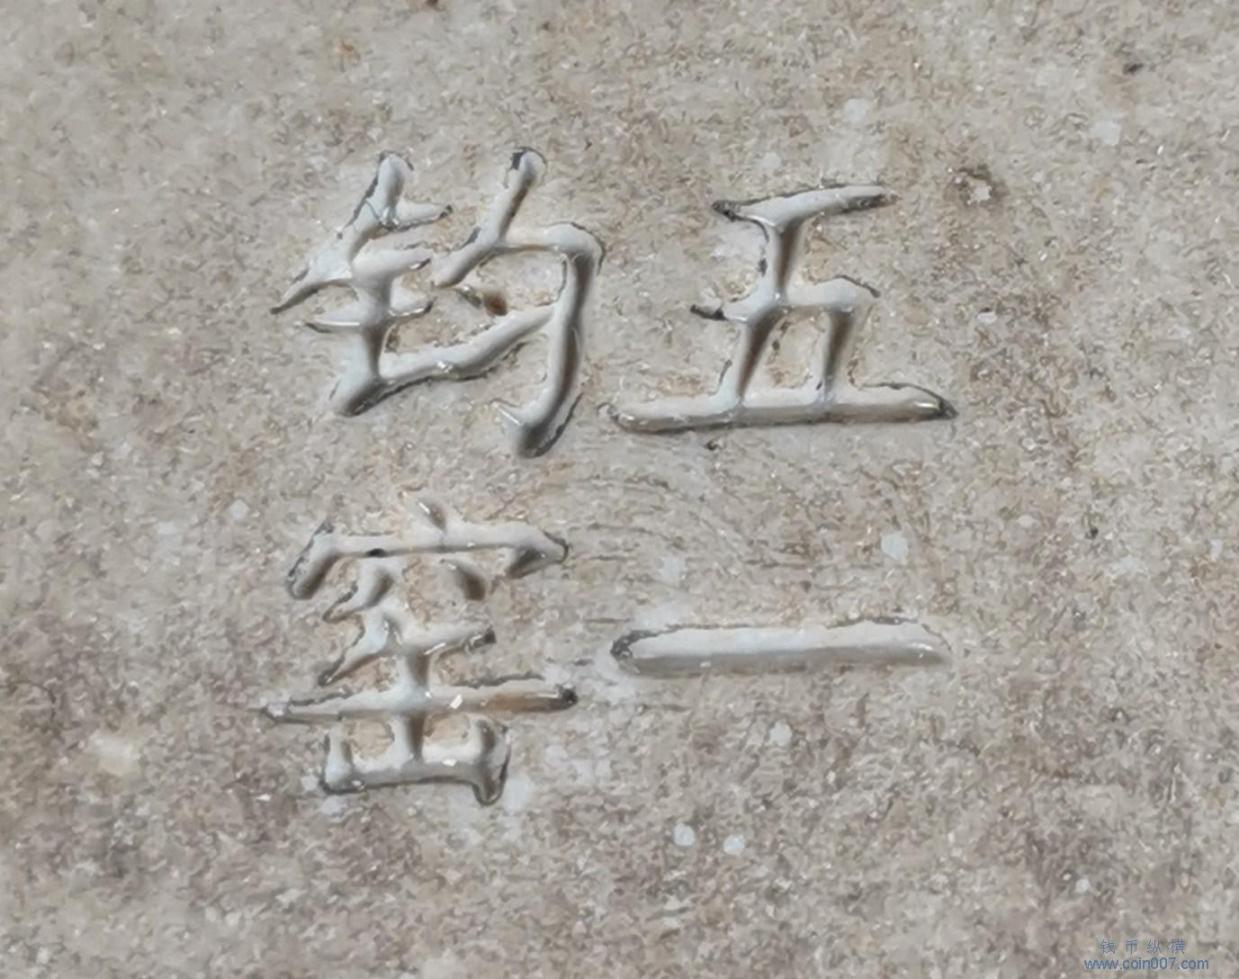 五一
钧窑
钱币纵横
www.coin007.com